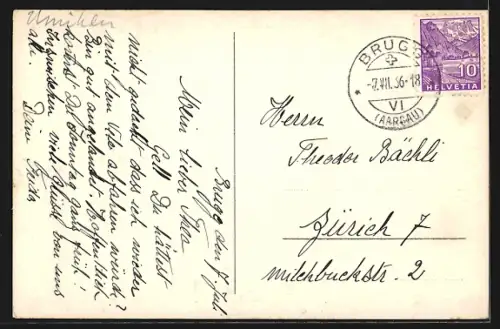 Umiken
Brugg den 7. Juli
Mein lieber Thea
Gell Du hättest
nicht gedacht dass ich wieder
mit dem Velo abfahren würde?
Bin gut angelandet. Hoffentlich
kommst Du Sonntag ganz früh!
Inzwischen viele Grüsse von uns
all.
Deine Frieda
BRUGG
-7.VII.36-18
VI
(AARGAU)
10
HELVETIA
Herrn
Theodor Bächli
Zürich 7
Milchbuckstr. 2